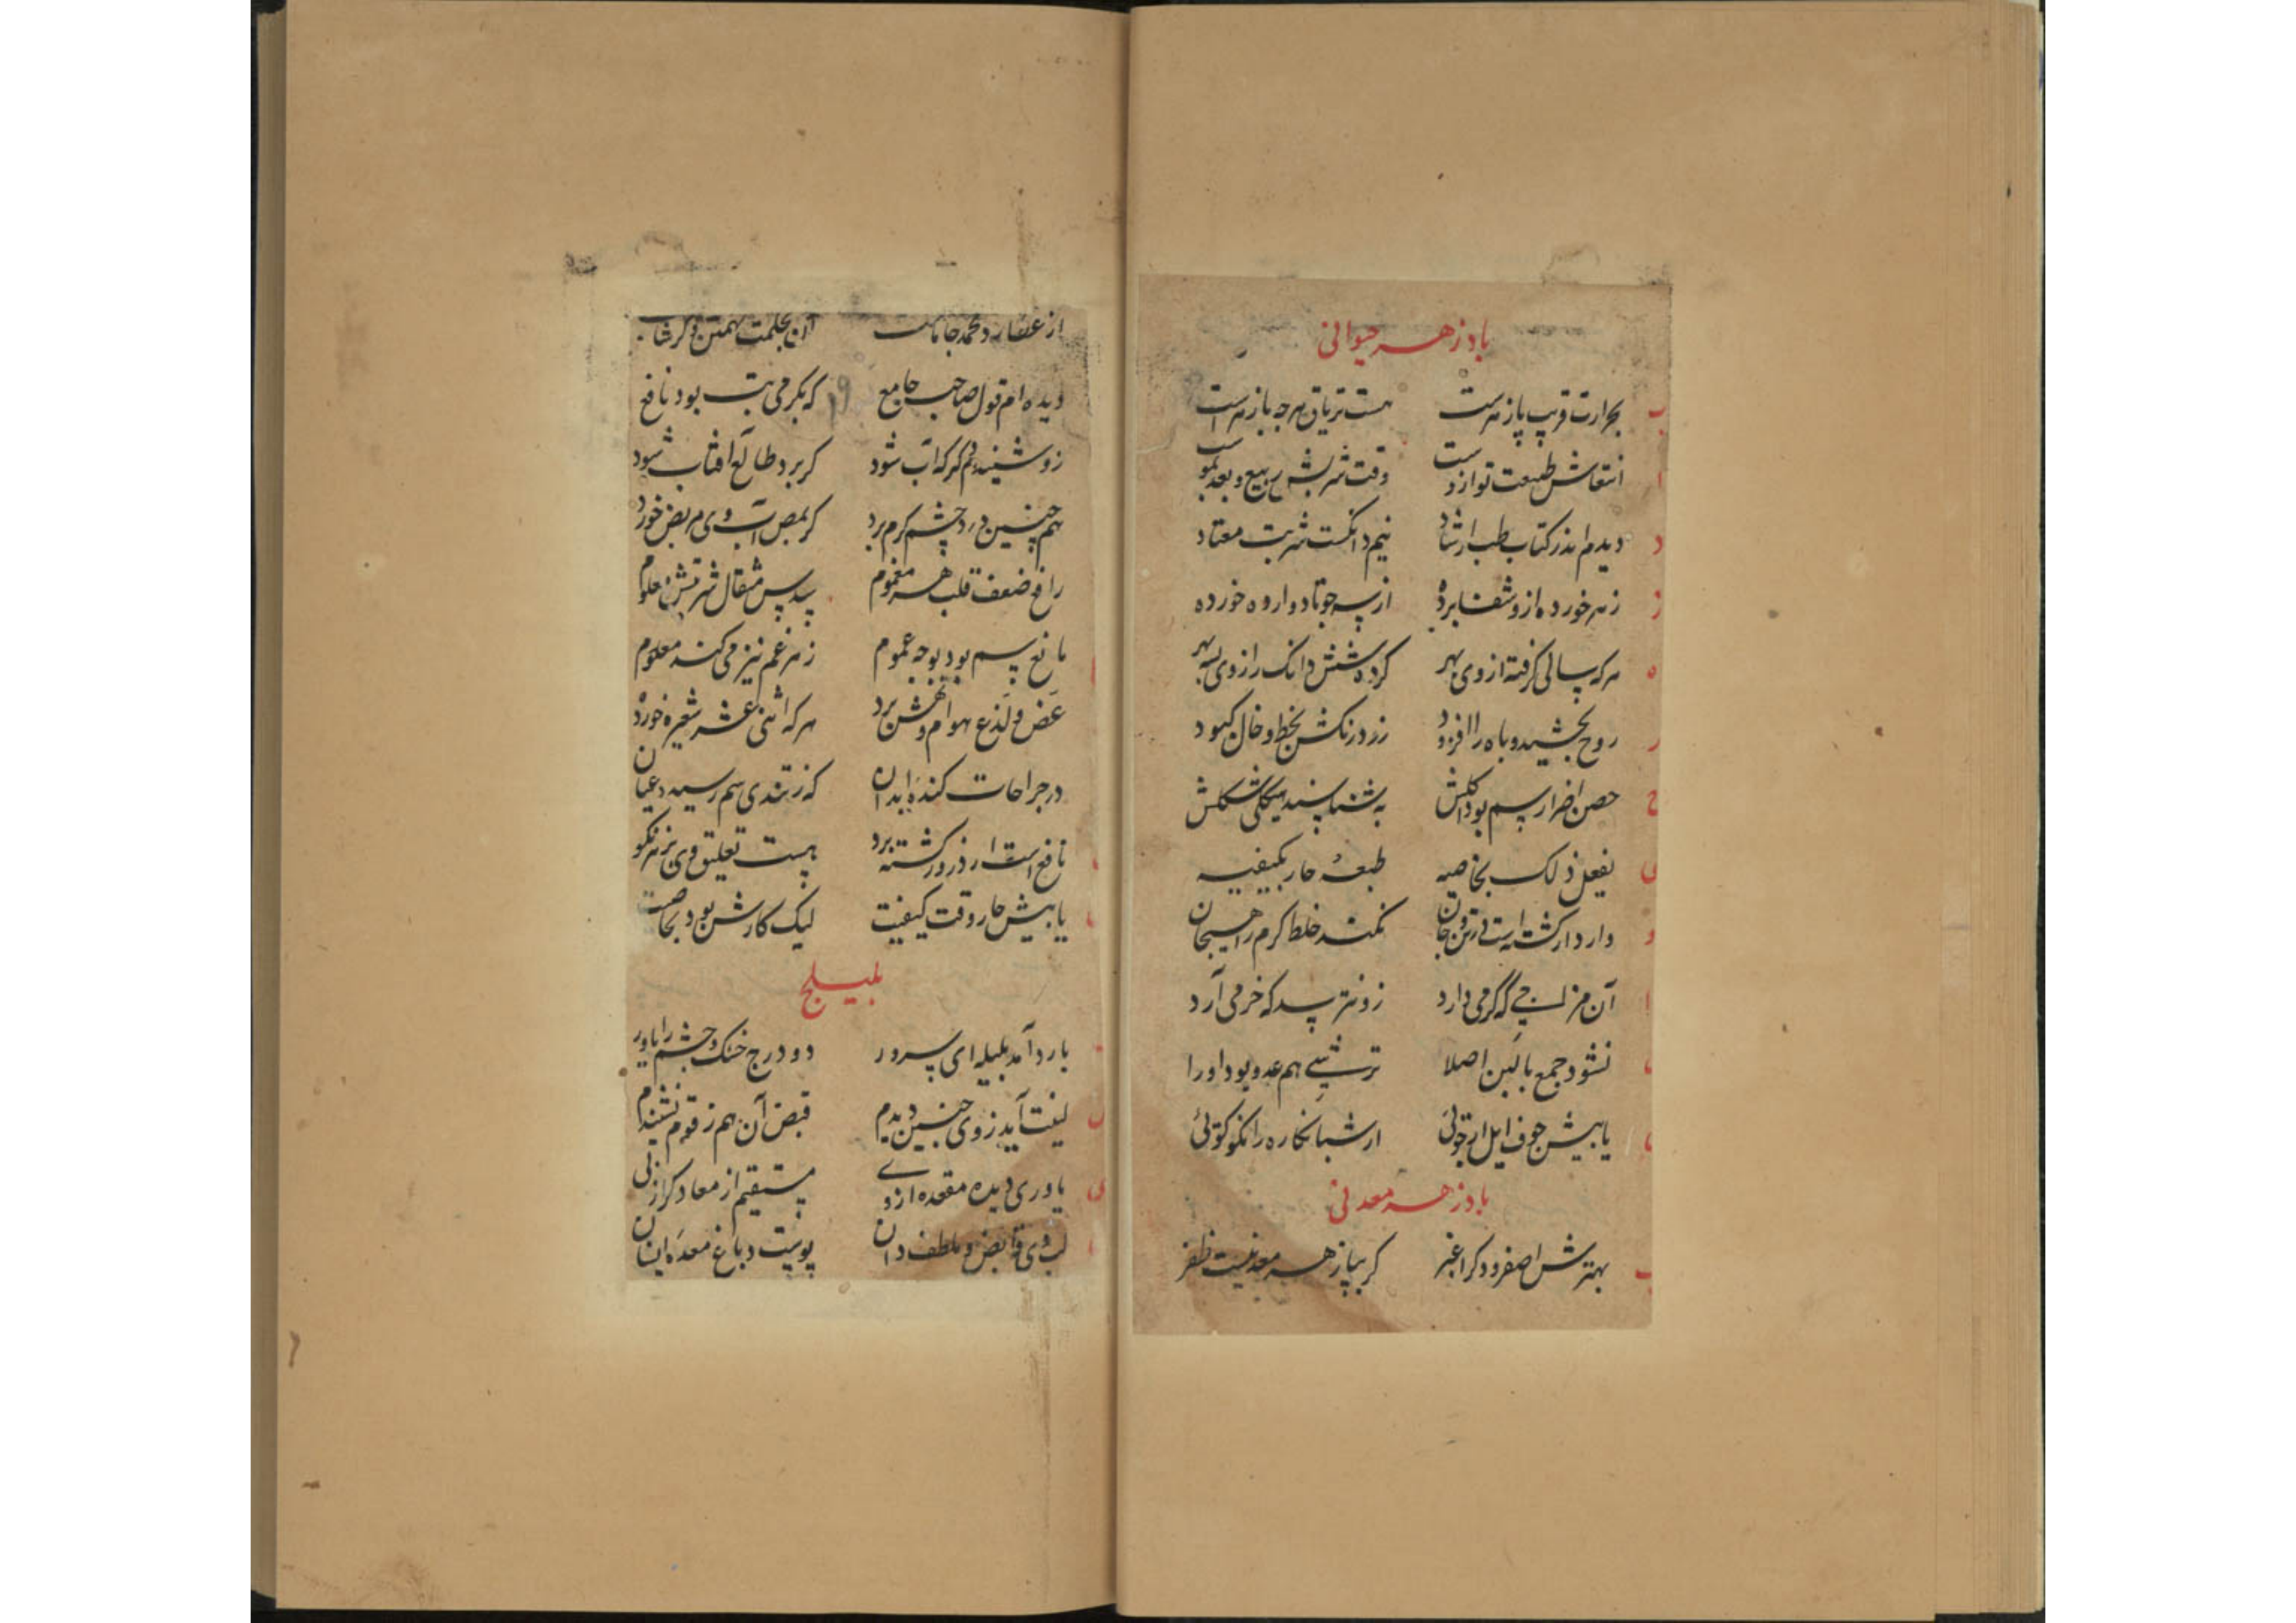 باد زهر حیوانی
ب بحرارت قریب پازهرست هست تریاق هرچه بازهرست
ا انتعاش طبیعت تو ازدست وقت شربش ربیع وبعد نمو
د دیدم اندر کتاب طب ارشاد نیم دانگست شربت معتاد
ز زهر خورده ازو شفا برده از سه جو تا دوازده خورده
ه هرکه سالی گرفته از وی بهر کرده شش دانگ را زوی بسه بهر
ر روح بخشید و باه را افزود زرد رنگش بخط و خال کبود
ح حصن اضرار سم بود اکلش به شناسند نیکی شکلش
ی یفعل ذلک بخاصیه طبعه حار بکیفیه
و دارد ار کشته است در تن و جان نکند خلط گرم را هیجان
ا آن مزاجی که گرمی دارد زو نترسد که خرمی آرد
ن نشود جمع با لبن اصلا ترشیی هم عدو بود او را
ی یابیش جوف ایل ار جوئی از شبانکاره را نکو گوئی
باد زهر معدنی
ب بهترش اصفر و دگر اغبر گر بپازهر معدنیست ظفر
از عفار و محمد جامات
دیده ام قول صاحب جامع که بگرمی تب بود نافع
زو شنیدم گر که آب شود گر برد طالع آفتاب شود
هم چنین درد چشم گرم برد گر بمص آب وی مریض خورد
رافع ضعف قلب هر مغموم سدس مثقال شربتش معلوم
مانع سم بود بوجه عموم زهر غم نیز می کند معلوم
عض و لذع هوام و نهش برد هر که اثنی عشر شعیره خورد
در جراحات کنده ابدان که ز تندی سم رسید عیان
نافع است ار ذرور گشته برد هست تعلیق وی بزهر نکو
یابیش حار وقت کیفیت لیک کارش بود بخاصیت
بلیلج
ب بارد آمد بلیله ای سرور دو درج خشک و چشم را یاور
ل لینت آید زوی چنین دیدم قبض آن هم ز قوم نشنیدم
ی یاوری دیده مقعده از وی مستقیم از معا دگر از نی
لب وی قابض و ملطف دان پوست دباغ معده انسان